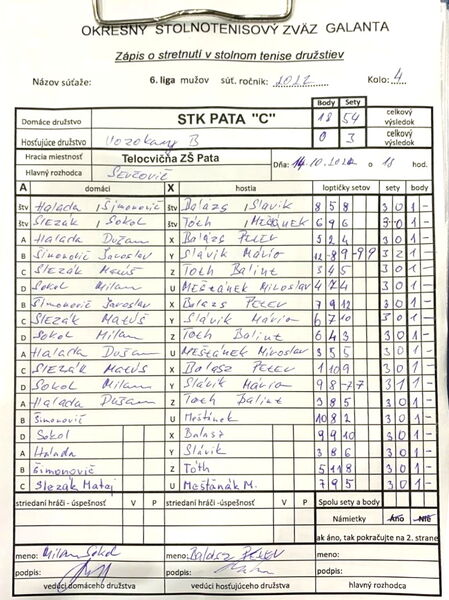 OKRESNÝ STOLNOTENISOVÝ ZVÄZ GALANTA
Zápis o stretnutí v stolnom tenise družstiev
Názov súťaže: 6. liga mužov súť. ročník: 2022 Kolo: 4
Body Sety
Domáce družstvo STK PATA "C" 18 54 celkový výsledok
Hosťujúce družstvo Vozokany B 0 3 celkový výsledok
Hracia miestnosť Telocvičňa ZŠ Pata Dňa: 14.10.2022 o 18 hod.
Hlavný rozhodca
A domáci X hostia loptičky setov sety body
štv Halada, Šimonovič štv Balázs, Slávik 8 5 8 3 0 1 -
štv Slezák, Sokol štv Tóth, Meštánek 6 9 6 3 0 1 -
A Halada Dušan X Balázs Peter 3 2 4 3 0 1 -
B Šimonovič Jaroslav Y Slávik Mário 12 -8 9 -9 9 3 2 1 -
C Slezák Matúš Z Tóth Balint 3 4 5 3 0 1 -
D Sokol Milan U Meštánek Miroslav 4 7 4 3 0 1 -
B Šimonovič Jaroslav X Balázs Peter 7 9 12 3 0 1 -
C Slezák Matúš Y Slávik Mário 6 7 10 3 0 1 -
D Sokol Milan Z Tóth Balint 6 4 3 3 0 1 -
A Halada Dušan U Meštánek Miroslav 3 5 5 3 0 1 -
C Slezák Matúš X Balasz Peter 1 10 9 3 0 1 -
D Sokol Milan Y Slávik Mário 9 8 -7 7 3 1 1 -
A Halada Dušan Z Tóth Balint 3 8 5 3 0 1 -
B Šimonovič U Meštánek 10 8 2 3 0 1 -
D Sokol X Balasz 9 9 10 3 0 1 -
A Halada Y Slávik 3 8 6 3 0 1 -
B Šimonovič Z Tóth 5 11 8 3 0 1 -
C Slezák Matej U Meštánák M. 7 9 5 3 0 1 -
striedaní hráči - úspešnosť V P striedaní hráči - úspešnosť V P Spolu sety a body
Námietky Áno Nie
ak áno, tak pokračujte na 2. strane
meno: Milan Sokol meno: Balasz Peter meno:
podpis: podpis: podpis:
vedúci domáceho družstva vedúci hosťujúceho družstva hlavný rozhodca